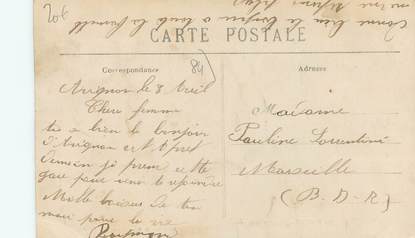 20€
donne bien le bonjour a toute la famille
CARTE POSTALE
Correspondance
84
Adresse
Avignon le 8 Avril
Chere femme
tu a bien le bonjour
d'Avignon est apret
demain je prend cette
gare pour vous le rejoindre
Mille baiser de ton
mari pour la vie
Madame
Pauline Lorentini
Marseille
(B. D. R)